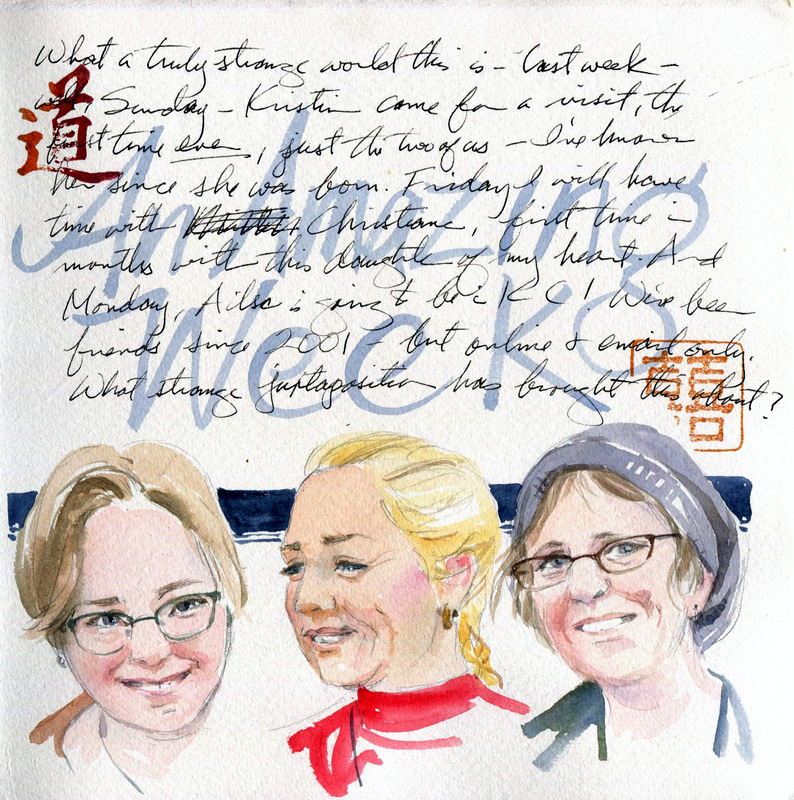 What a truly strange world this is – last week –
well, Sunday – Kristin came for a visit, the
first time ever, just the two of us – I've known
her since she was born. Friday I will have
time with Christiane, first time in
months with this daughter of my heart. And
Monday, Ailsa is going to be in KC! We've been
friends since 2001 – but online & email only.
What strange juxtaposition has brought this about?
道
An Amazing
Week
囍